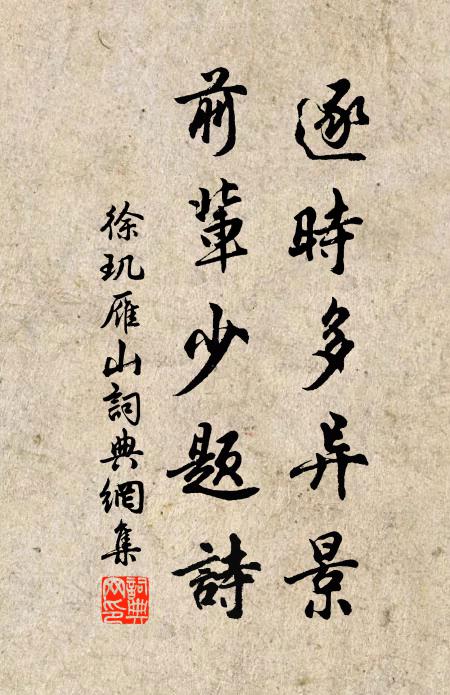 逐時多异景
前輩少題詩
徐玑雁山詞典網集
詞典网印